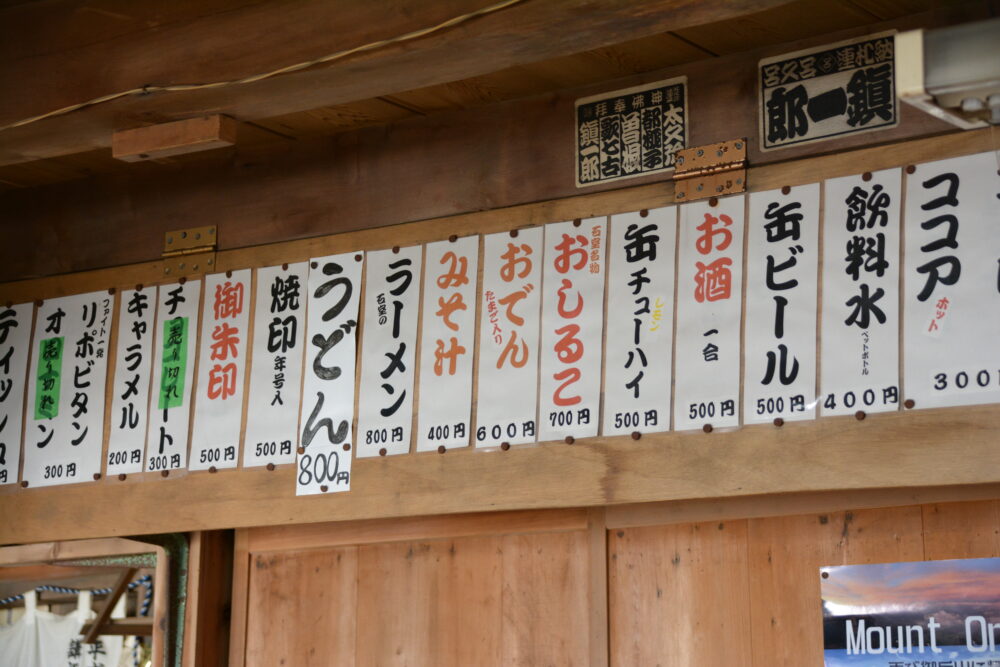 納札連呂久呂
鎮一郎
太久
神佛奉拝
鎮一郎
ココア
ホット
300
飲料水
ペットボトル
400円
缶ビール
500円
お酒
一合
500円
缶チューハイ
レモン
500円
石室名物
おしるこ
700円
おでん
たまご入り
600円
みそ汁
400円
石室の
ラーメン
800円
うどん
800円
焼印
年号入
500円
御朱印
500円
売り切れ
300円
キャラメル
200円
ファイト一発
リポビタン
売り切れ
300円
Mount On